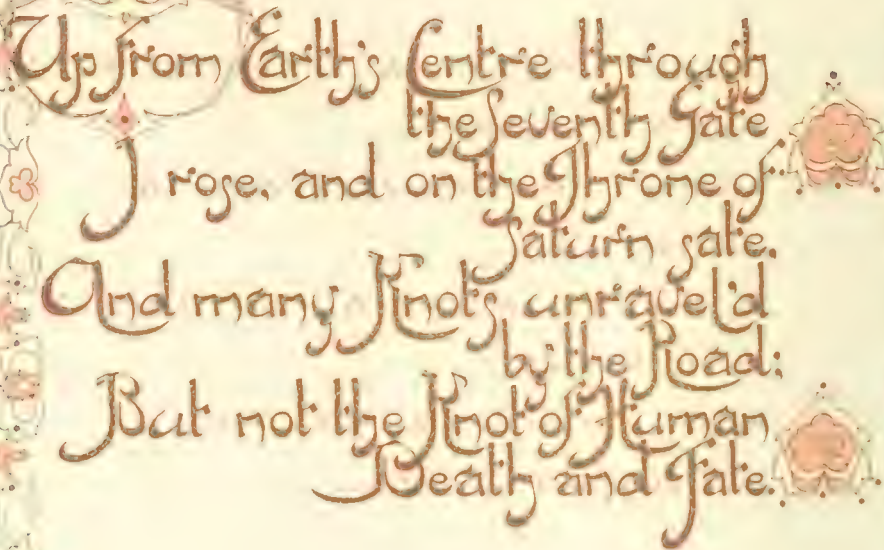 Up from Earth's Centre through
the Seventh Gate
I rose, and on the Throne of
Saturn sate,
And many Knots unravel'd
by the Road;
But not the Knot of Human
Death and Fate.